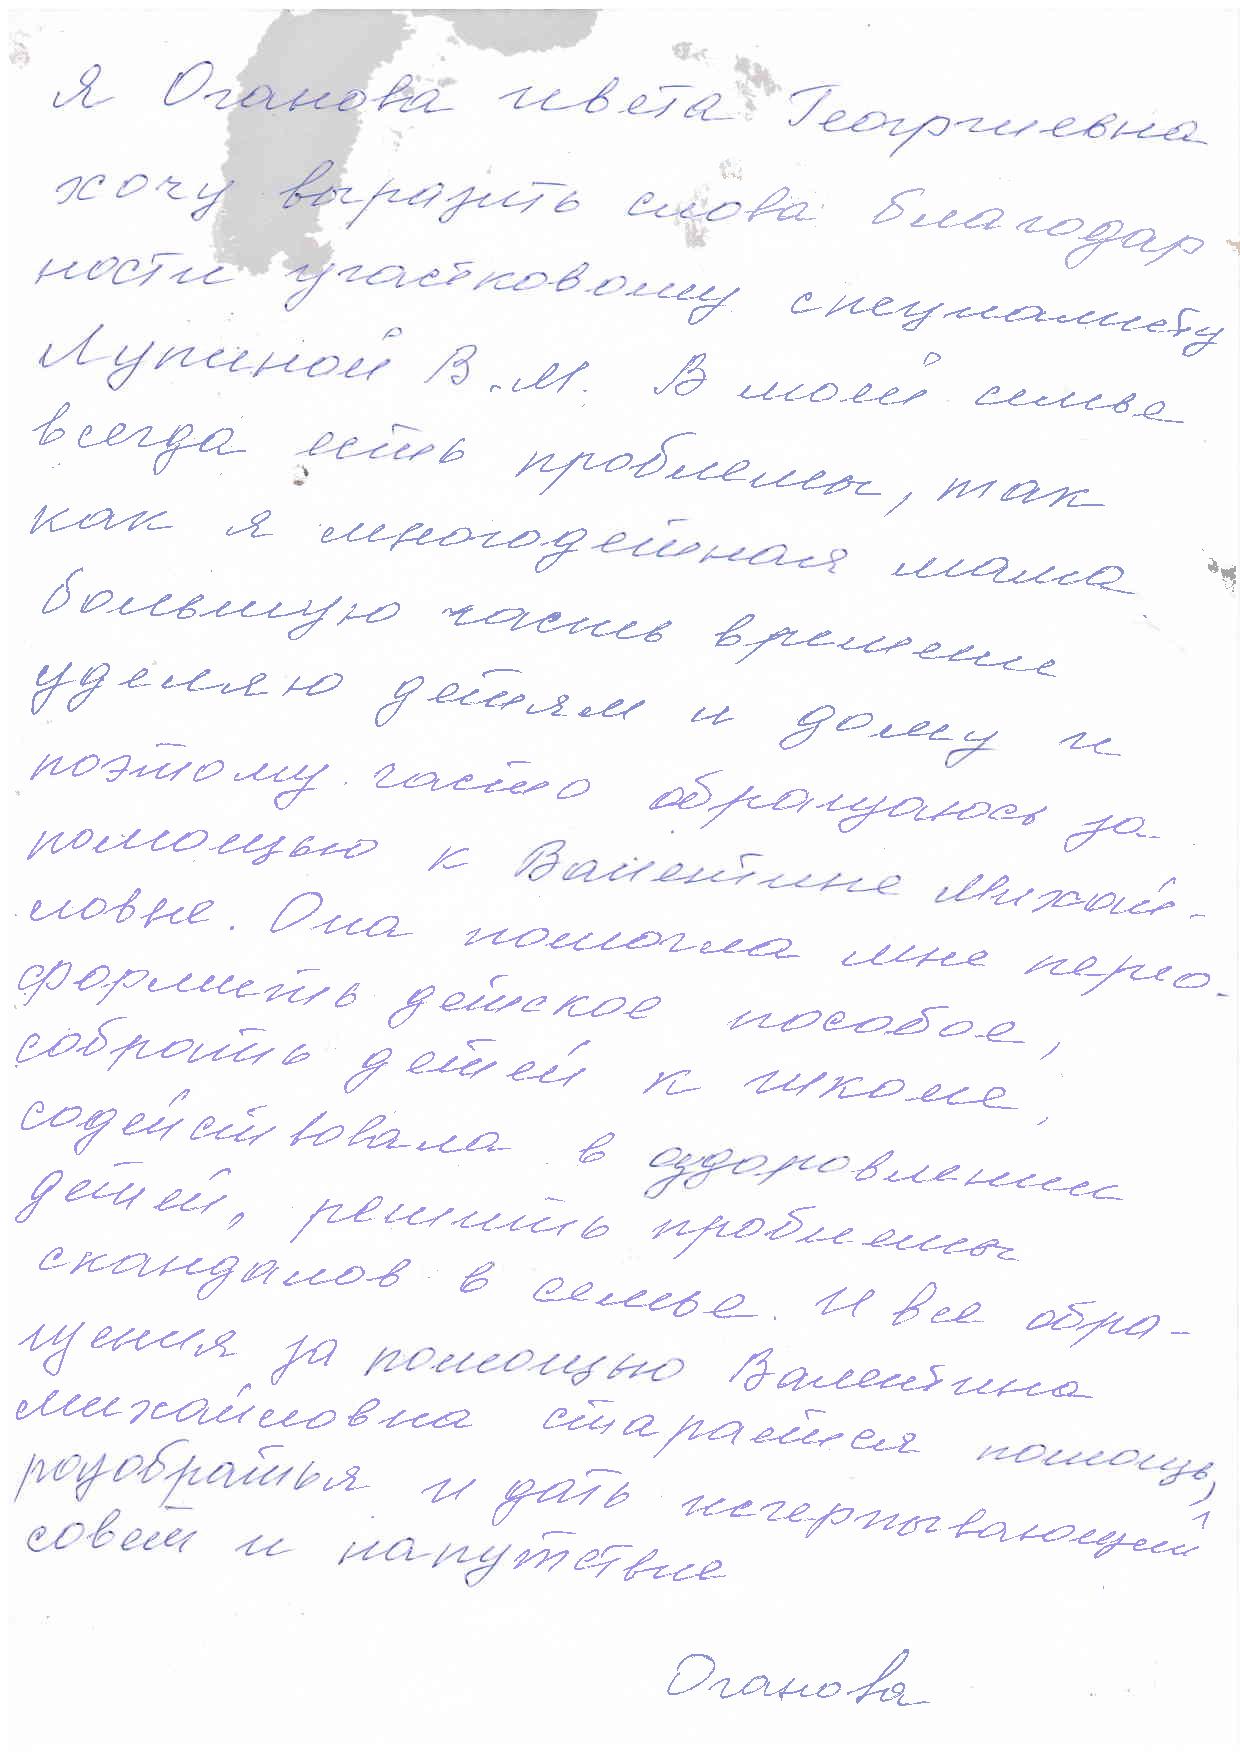 Я Оганова Ивета Георгиевна
хочу выразить слова благодар
ности участковому специалисту
Лупиной В.М. В моей семье
всегда есть проблемы, так
как я многодетная мама
большую часть времени
уделяю детям и дому и
поэтому часто обращаюсь за
помощью к Валентине Михай-
ловне. Она помогла мне перео-
формить детское пособое,
собрать детей к школе,
содействовала в оздоровлении
детей, решить проблемы
скандалов в семье. И все обра-
щения за помощью Валентина
Михайловна старается помощь,
розобраться и дать исчерпывающий
совет и напутствие
Оганова